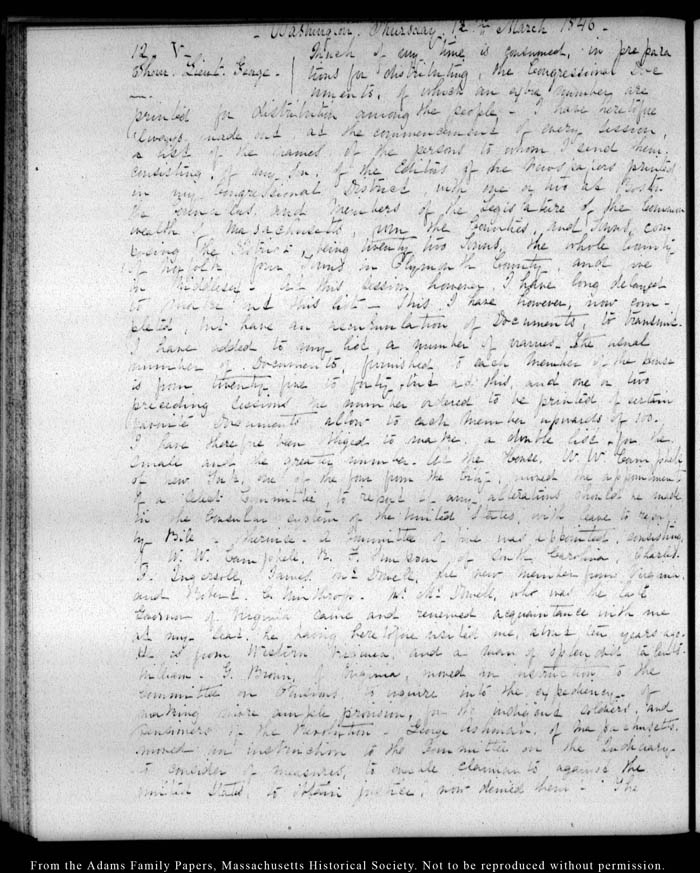 - Washington. Thursday. 12th March 1846. -
12. V. Much of my time is consumed, in prepara
Shaw. Lieut. George. tions for distributing, the Congressional Docu
ments, of which an extra number are
printed for distribution among the people. - I have heretofore
always made out at the commencement of every session,
a list of the names of the persons to whom I send them,
consisting of the Editors of the Newspapers printed
in my Congressional District, with one or two at Boston
the and Members of the Legislature of the Common
wealth of Massachusetts, from the Counties, and Towns, com
posing the District, being twenty two Towns, the whole County
of Norfolk, four Towns in Plymouth County, and one
in Middlesex - At this session, however, I have long delayed
to make out this list - This I have however, now com-
pleted, but have an accumulation of Documents, to transmit.
I have added to my list a number of names. The usual
number of Documents, furnished to each member of the house
is from twenty five to forty, but at this, and one or two
preceding sessions the number ordered to be printed of certain
favorite Documents allow to each member upwards of 100.
I have therefore been obliged to make a double list, for the
smaller and the greater number. At the House. W. W. Campbell
of New York, one of the four from the City, moved the appointment
of a select Committee, to report if any alterations should be made
in the Consular system of the United States, with leave to report
by Bill - A Committee of five was appointed, consisting,
of W. W. Campbell, R. F. Simpson, of South Carolina, Charles
J. Ingersoll, James McDowell, the new member from Virginia,
and Robert C. Winthrop. Mr McDowell, who was the late
Governor of Virginia came and renewed acquaintance with me
at my seat, he having heretofore visited me, about ten years ago.
He is from Western Virginia, and a man of splendid talents.
William G. Brown, of Virginia, moved an instruction to the
Committee on Pensions, to inquire into the expediency of
making more ample provision, for the indigent soldiers, and
pensioners of the Revolution - George Ashmun, of Massachusetts,
moved an instruction to the Committee on the Judiciary
to consider of measures, to enable claimants against the
United States, to obtain justice, now denied them - The
From the Adams Family Papers, Massachusetts Historical Society. Not to be reproduced without permission.